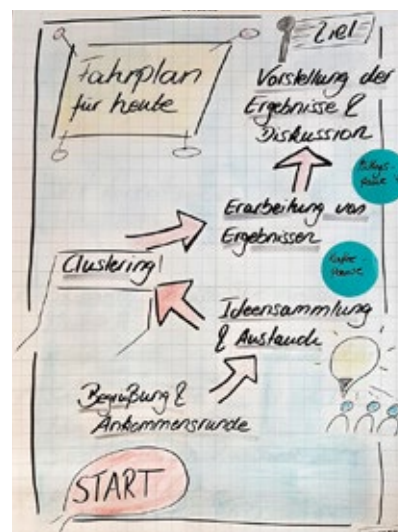 Fahrplan
für heute
Ziel
Vorstellung der
Ergebnisse &
Diskussion
Erarbeitung von
Ergebnissen
Kaffee-
pause
Clustering
Ideensammlung
& Austausch
Begrüßung &
Ankommensrunde
START